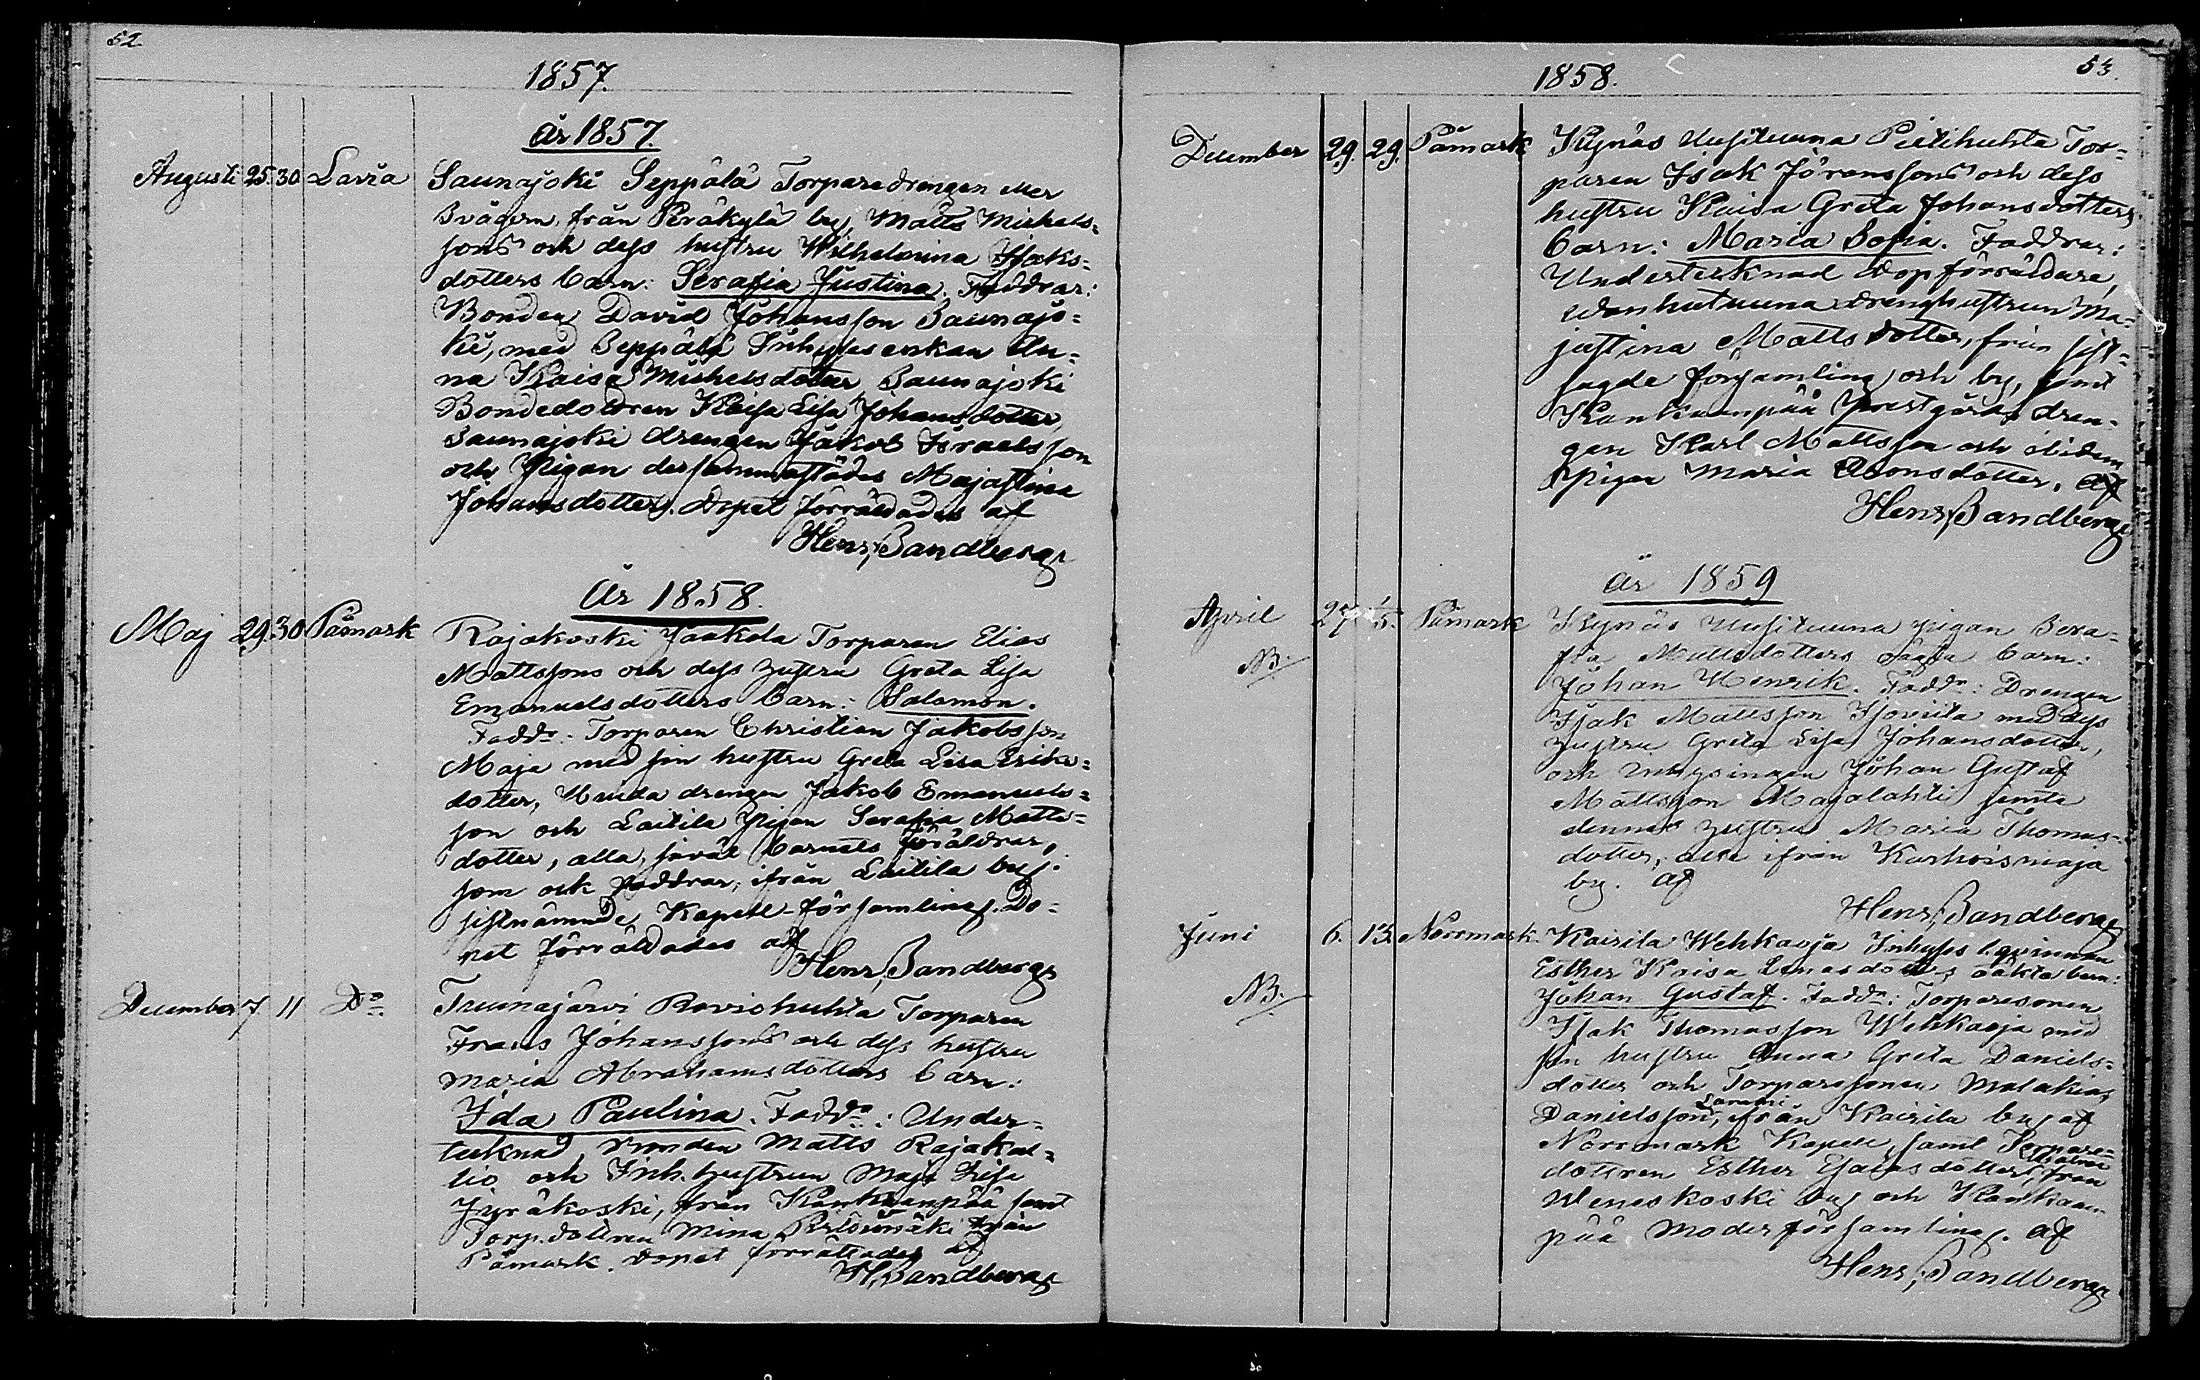 52.
1857.
År 1857.
Augusti 25. 30. Lavia Saunajoki Seppälä Torparedrengen eller
Svågern, från Peräkylä by, Matts Michels=
sons och dess hustru Wilhelmina Isaks=
dotters barn: Serafia Justina. Faddrar:
Bonden David Johansson Saunajo=
ki, med Seppälä Inhyses enkan An=
na Kaisa Michelsdotter, Saunajoki
Bondedottren Kaisa Lisa Johansdotter,
Saunajoki drengen Jakob Israelsson
och Pigan dersammastädes Majastina
Johansdotter. Dopet förrättades af
Henr. Sandberg
År 1858.
Maj 29. 30. Påmark Rajakoski Jaakola Torparen Elias
Mattssons och dess hustru Greta Lisa
Emanuelsdotters barn: Salomon.
Faddr: Torparen Christian Jakobsson
Maja med sin hustru Greta Lisa Eriks=
dotter, drengen Jakob Emanuels=
son och Laitila Pigan Serafia Matts=
dotter, alla, såväl barnets föräldrar,
som ock faddrar, ifrån Laitila by.
sistnämnde Kapell-församling. Do=
pet förrättades af
Henr. Sandberg
December 7 11 Do Trumajärvi Rovichuhta Torparen
Frans Johanssons och dess hustru
Maria Abrahamsdotters barn:
Ida Paulina. Faddr: Under=
tecknad, Bonden Matts Rajakal=
lio och Inh. hustrun Maja Lisa
Jyräkoski, från Kankaanpää samt
Torp.dottren Mina från
Påmark. Dopet förrättades af
H. Sandberg
53.
1858.
December 29. 29. Påmark Kynäs Uusituuna Pietihuhta Tor=
paren Isak Göranssons och dess
hustru Kaisa Greta Johansdotters
barn: Maria Sofia. Faddrar:
Undertecknad Dopförrättare,
drenghustrun Ma=
jastina Mattsdotter, från sist=
sagde församling och by, samt
Kankaanpää Prestgårds dren=
gen Karl Mattsson och
pigan Maria Aronsdotter. Af
Henr. Sandberg
År 1859
April 27. 1/5. Påmark Kynäs Uusituuna pigan Sera=
fia Mattsdotters oäkta barn:
NB.
Johan Henrik. Faddr: Drengen
Isak Mattsson med dess
hustru Greta Lisa Johansdotter,
och inhysingen Johan Gustaf
Mattsson Majalahti jemte
dennes hustru Maria Thomas=
dotter, alla ifrån Karhoismaja
by. Af
Henr. Sandberg
Juni 6. 13. Norrmark. Kairila Wehkaoja Inhyses qvinnan
Esther Kaisa dotters oäkta barn:
NB.
Johan Gustaf. Faddr: Torparesonen
Isak Thomasson Wehkaoja med
sin hustru Anna Greta Daniels=
dotter och Torparesonen Malakias
Danielsson, från Kairila by af
Norrmark Kapell, samt Torpare=
dottren Esther Esaiasdotter, från
Weneskoski by och Kankaan=
pää Moderförsamling. Af
Henr. Sandberg